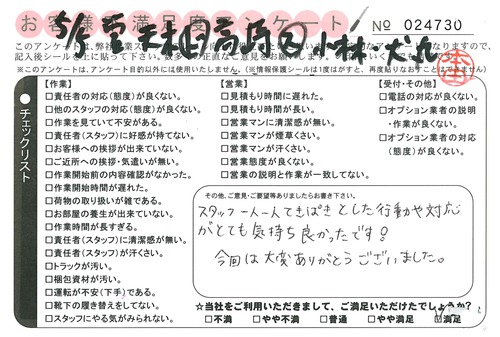 お客様満足度アンケート
№ 024730
5/6
小林・犬丸
※このアンケートは、アンケート目的以外には使用いたしません。(※情報保護シールは1度はがすと、再度貼りなおすことはできません)
チェックリスト
【作業】
□責任者の対応(態度)が良くない。
□他のスタッフの対応(態度)が良くない。
□作業を見ていて不安がある。
□責任者(スタッフ)に好感が持てない。
□お客様への挨拶が出来ていない。
□ご近所への挨拶・気遣いが無い。
□作業開始前の内容確認がなかった。
□作業開始時間が遅れた。
□荷物の取り扱いが雑である。
□お部屋の養生が出来ていない。
□作業時間が長すぎる。
□責任者(スタッフ)に清潔感が無い。
□責任者(スタッフ)が汗くさい。
□トラックが汚い。
□梱包資材が汚い。
□運転が不安(下手)である。
□靴下の履き替えをしてない。
□スタッフにやる気がみられない。
【営業】
□見積もり時間に遅れた。
□見積もり時間が長い。
□営業マンに清潔感が無い。
□営業マンが煙草くさい。
□営業マンが汗くさい。
□営業態度が良くない。
□営業の説明と作業が一致してない。
【受付・その他】
□電話の対応が良くない。
□オプション業者の説明
・作業が良くない。
□オプション業者の対応
(態度)が良くない。
その他、ご意見・ご要望等ありましたらお書き下さい。
スタッフ一人一人てきぱきとした行動や対応
がとても気持ち良かったです!
今回は大変ありがとうございました。
★当社をご利用いただきまして、ご満足いただけたでしょうか?
□不満 □やや不満 □普通 □やや満足 ☑満足